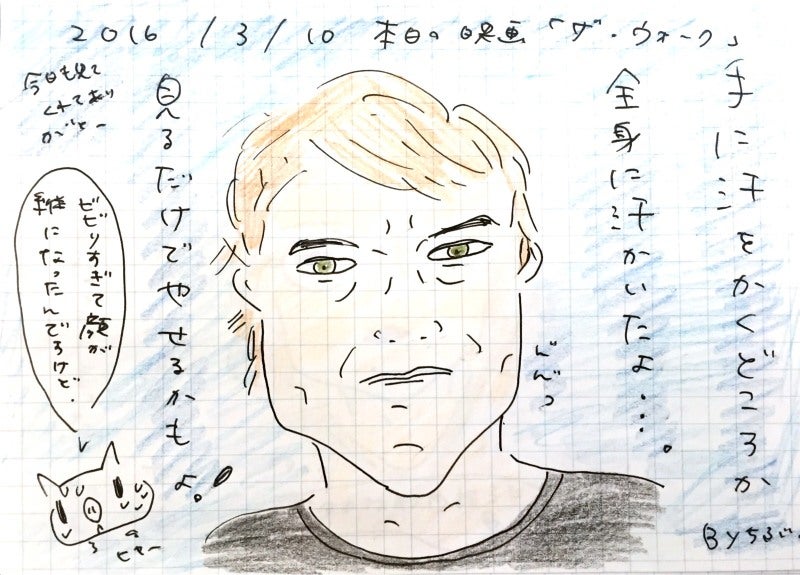 2016/3/10 本日の映画「ザ・ウォーク」
手に汗をかくどころか
全身に汗かいたよ・・・。
見るだけでやせるかも
よ。
今日も見て
くれてあり
がとー
ビビりすぎて顔が
雑になったんですけど。
どんっ
ヒャー
Byちぶ